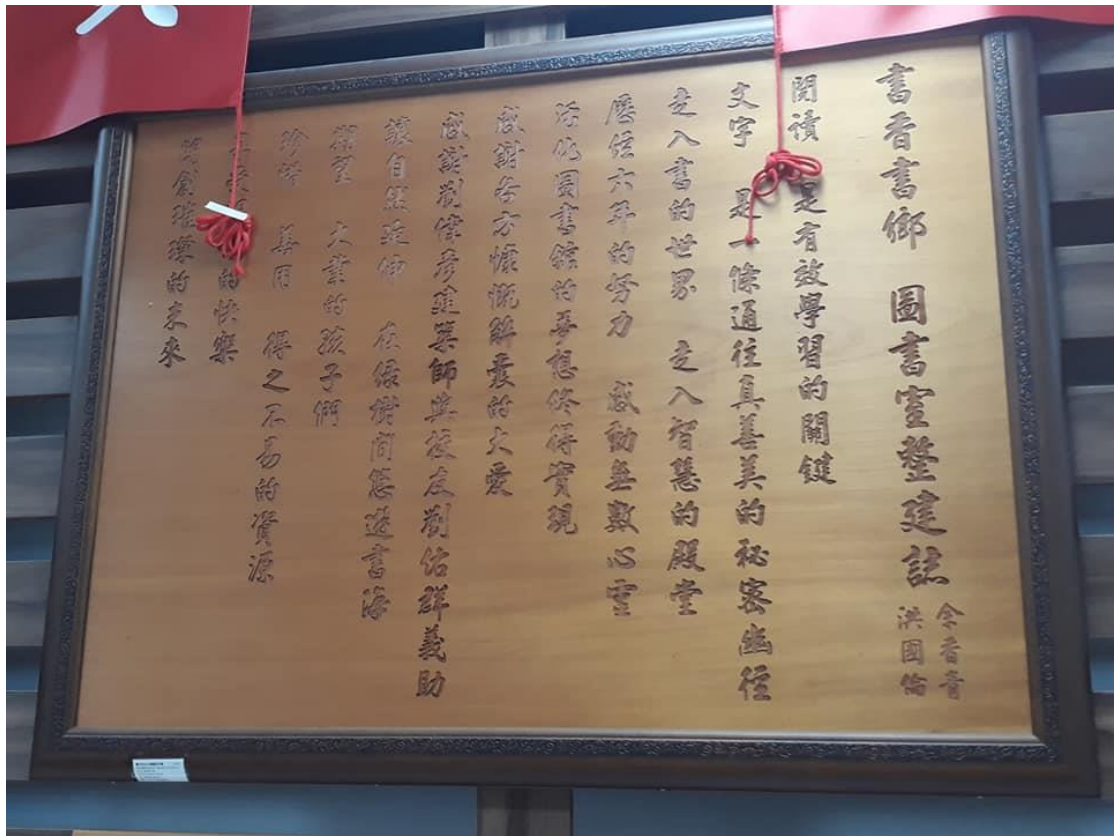 書香書鄉 圖書室整建誌
余香青
洪國倫
閱讀 是有效學習的關鍵
文字 是一條通往真善美的秘密幽徑
走入書的世界 走入智慧的殿堂
歷經六年的努力 感動無數心靈
活化圖書館的夢想終得實現
感謝各方慷慨解囊的大愛
感謝劉偉彥建築師與校友劉佑群義助
讓自然延伸 在綠樹間悠遊書海
期望 大業的孩子們
珍惜 善用 得之不易的資源
的快樂
開創璀璨的未來